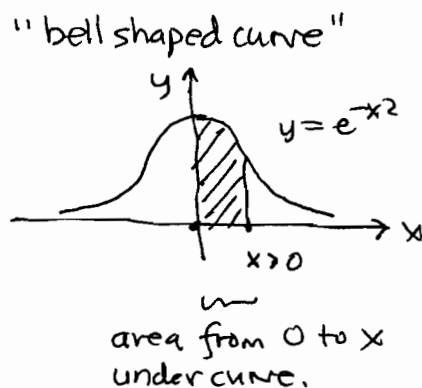 "bell shaped curve"
y
y = e^{-x^2}
x
x>0
area from 0 to x
under curve.